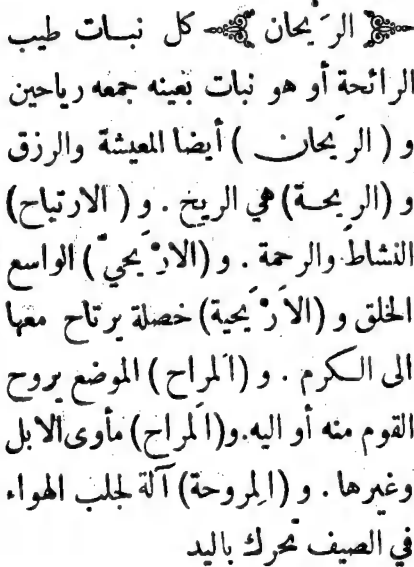 ﴿ الرَيْحان ﴾ كل نبات طيب
الرائحة أو هو نبات بعينه جمعه رياحين
و ( الرَيحان ) أيضا المعيشة والرزق
و (الريحة) هي الريح . و ( الارتياح )
النشاط والرحمة . و (الارْيَحيّ ) الواسع
الخلق و (الأرْيَحية) خصلة يرتاح معها
الى الكرم . و (اَلمراح ) الموضع يروح
القوم منه أو اليه.و(اُلمراح) مأوى الابل
وغيرها . و (اِلمروحة) آلة لجلب الهواء
في الصيف تُحرك باليد